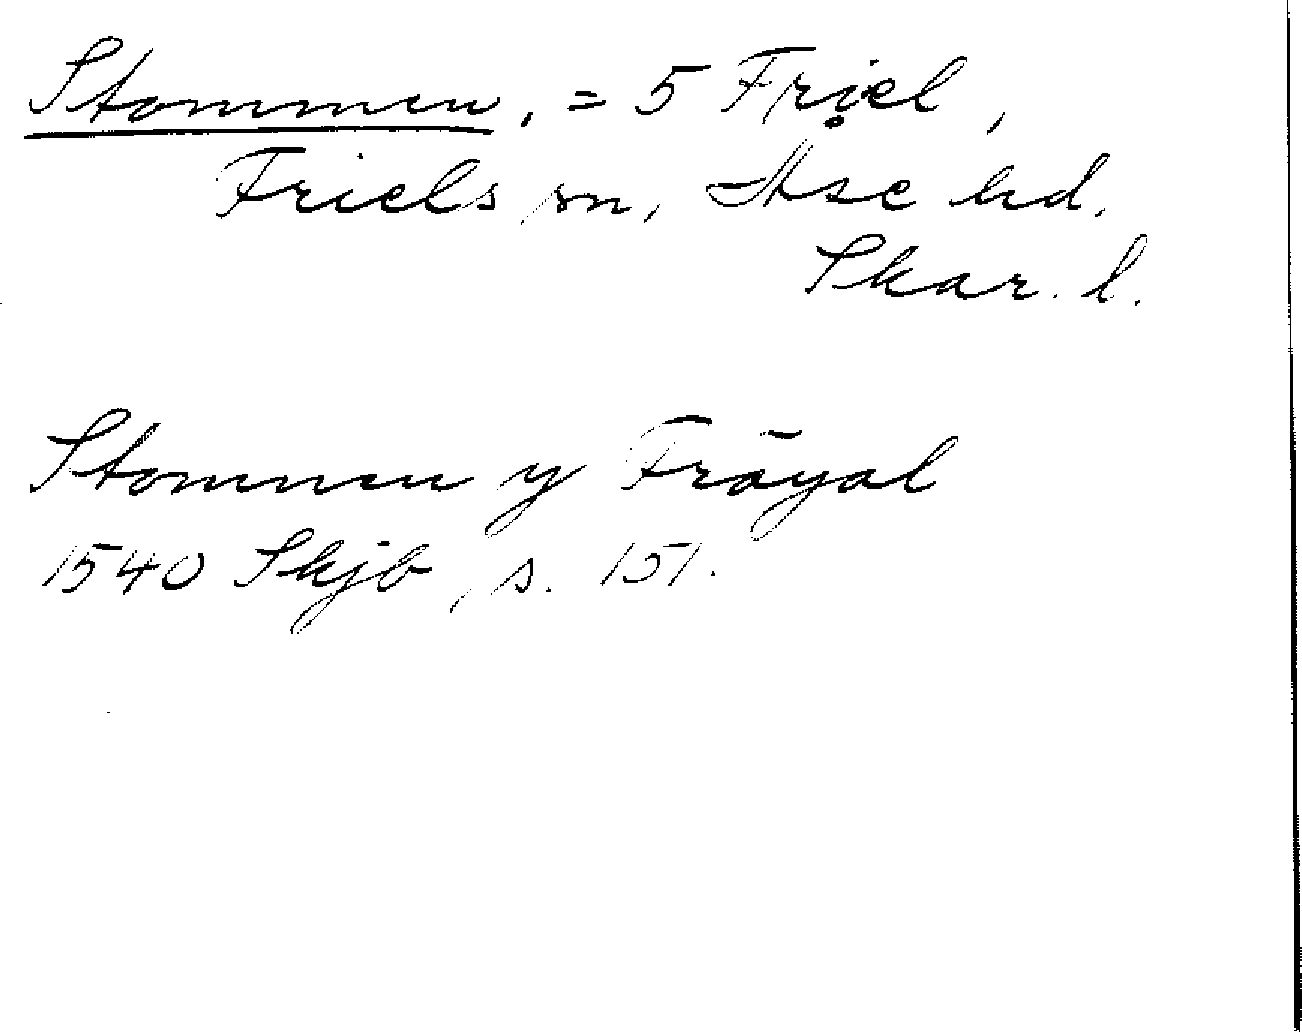 Stommen, = 5 Friel,
Friels sn, Åse hd.
Skar. l.
Stommen y Fräyal
1540 Skjb, s. 151.